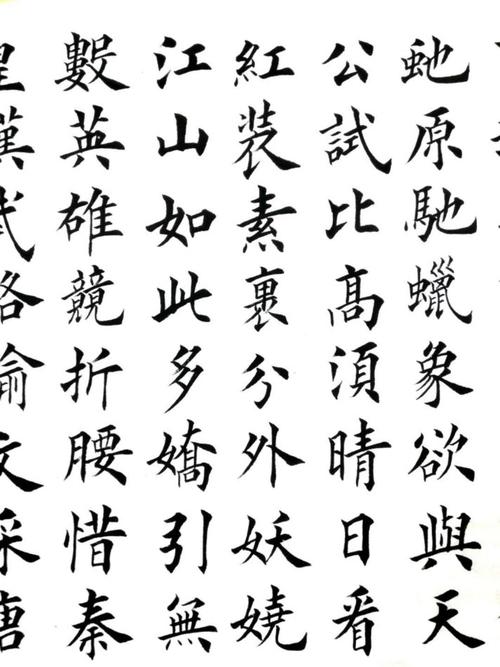 虵原馳蠟象欲與天
公試比髙湏晴日看
紅裝素裹分外妖嬈
江山如此多嬌引無
數英雄競折腰惜秦